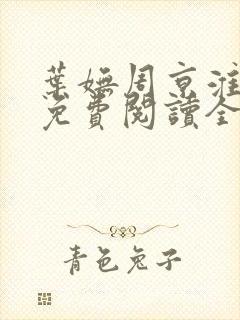 葉嫵周京淮
免費閱讀全
青色兔子